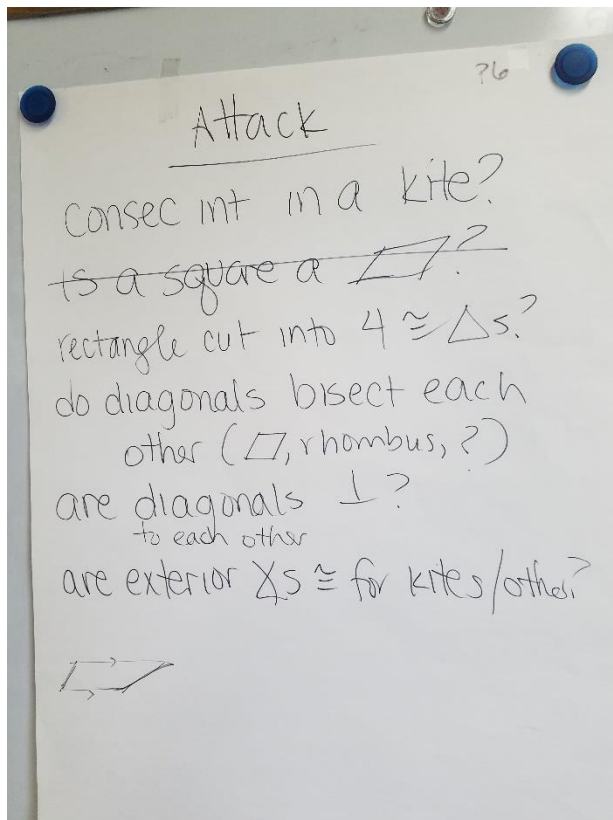 ?6
Attack
consec int in a kite?
is a square a ▱?
rectangle cut into 4 ≅ △s?
do diagonals bisect each
other (▱, rhombus, ?)
are diagonals ⊥?
to each other
are exterior ∡s ≅ for kites/other?